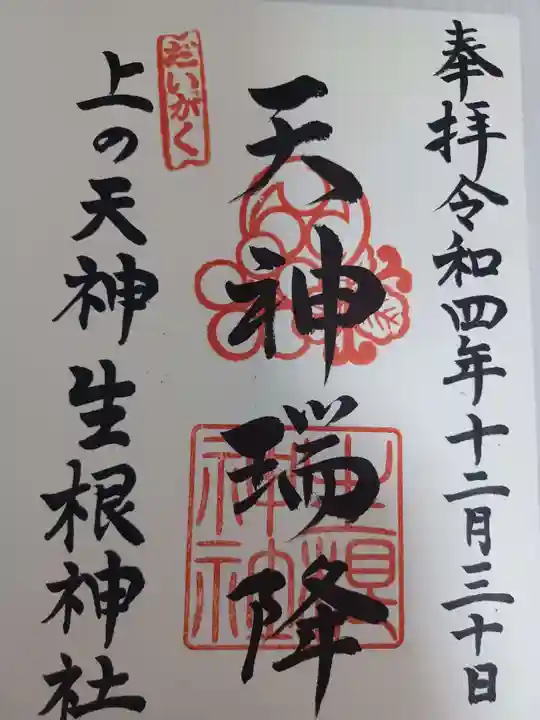 奉拝令和四年十二月三十日
天神瑞降
生根神社
だいがく
上の天神生根神社